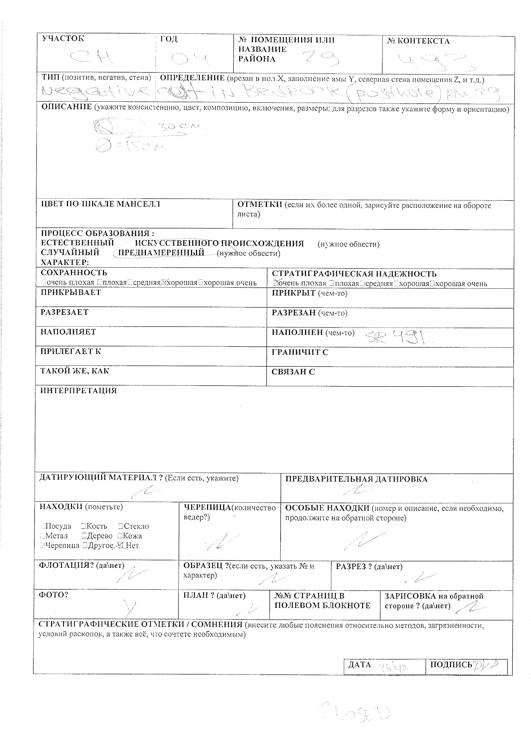 УЧАСТОК ГОД № ПОМЕЩЕНИЯ ИЛИ НАЗВАНИЕ РАЙОНА № КОНТЕКСТА
CH 04 29 493
ТИП (позитив, негатив, стена) ОПРЕДЕЛЕНИЕ (врезан в пол X, заполнение ямы Y, северная стена помещения Z, и т.д.)
Negative cut in (posthole) rm 29
ОПИСАНИЕ (укажите консистенцию, цвет, композицию, включения, размеры: для разрезов также укажите форму и ориентацию)
30 см
= 15 см
ЦВЕТ ПО ШКАЛЕ МАНСЕЛЛ
ОТМЕТКИ (если их более одной, зарисуйте расположение на обороте листа)
ПРОЦЕСС ОБРАЗОВАНИЯ :
ЕСТЕСТВЕННЫЙ ИСКУССТВЕННОГО ПРОИСХОЖДЕНИЯ (нужное обвести)
СЛУЧАЙНЫЙ ПРЕДНАМЕРЕННЫЙ (нужное обвести)
ХАРАКТЕР:
СОХРАННОСТЬ
очень плохая плохая средняя хорошая хорошая очень
СТРАТИГРАФИЧЕСКАЯ НАДЕЖНОСТЬ
очень плохая плохая средняя хорошая хорошая очень
ПРИКРЫВАЕТ ПРИКРЫТ (чем-то)
РАЗРЕЗАЕТ РАЗРЕЗАН (чем-то)
НАПОЛНЯЕТ НАПОЛНЕН (чем-то) 491
ПРИЛЕГАЕТ К ГРАНИЧИТ С
ТАКОЙ ЖЕ, КАК СВЯЗАН С
ИНТЕРПРЕТАЦИЯ
ДАТИРУЮЩИЙ МАТЕРИАЛ ? (Если есть, укажите) ПРЕДВАРИТЕЛЬНАЯ ДАТИРОВКА
N N
НАХОДКИ (пометьте)
Посуда Кость Стекло
Метал Дерево Кожа
Черепица Другое Нет
ЧЕРЕПИЦА(количество ведер?)
N
ОСОБЫЕ НАХОДКИ (номер и описание, если необходимо, продолжите на обратной стороне)
N
ФЛОТАЦИЯ? (да\нет) ОБРАЗЕЦ ?(если есть, указать № и характер) РАЗРЕЗ ? (да\нет)
N N N
ФОТО? ПЛАН ? (да\нет) №№ СТРАНИЦ В ПОЛЕВОМ БЛОКНОТЕ ЗАРИСОВКА на обратной стороне ? (да\нет)
Y N N
СТРАТИГРАФИЧЕСКИЕ ОТМЕТКИ / СОМНЕНИЯ (внесите любые пояснения относительно методов, загрязненности,
условий раскопок, а также всё, что сочтете необходимым)
ДАТА ПОДПИСЬ
CLOSED